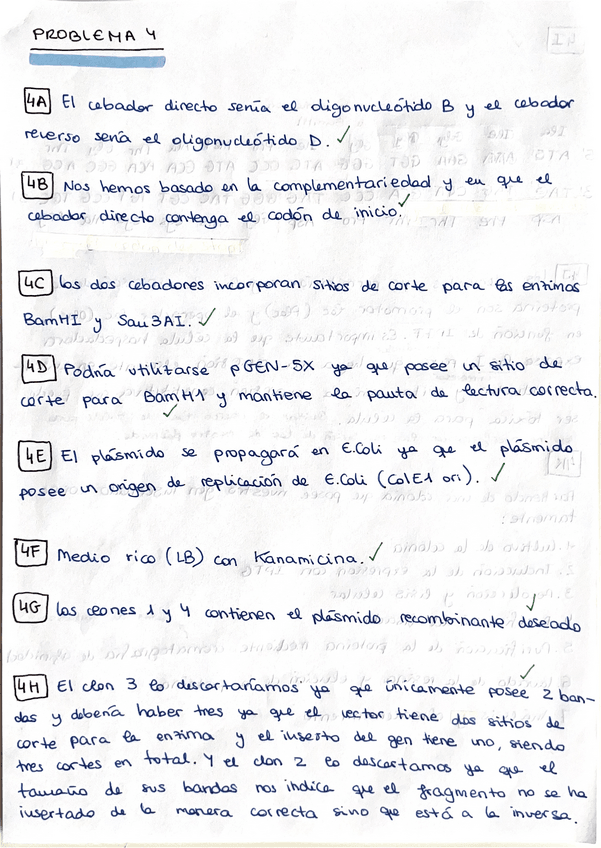 PROBLEMA 4
4A El cebador directo sería el oligonucleótido B y el cebador
reverso sería el oligonucleótido D. ✓
4B Nos hemos basado en la complementariedad y en que el
cebador directo contenga el codón de inicio. ✓
4C Los dos cebadores incorporan sitios de corte para las enzimas
BamHI y Sau3AI. ✓
4D Podría utilizarse pGEN-5X ya que posee un sitio de
corte para BamHI y mantiene la pauta de lectura correcta.
✓
4E El plásmido se propagará en E.Coli ya que el plásmido
posee un origen de replicación de E.Coli (ColE1 ori). ✓
4F Medio rico (LB) con Kanamicina. ✓
4G Los clones 1 y 4 contienen el plásmido recombinante deseado ✓
4H El clon 3 lo descartaríamos ya que únicamente posee 2 ban- ✓
das y debería haber tres ya que el vector tiene dos sitios de
corte para la enzima y el inserto del gen tiene uno, siendo
tres cortes en total. Y el clon 2 lo descartamos ya que el
tamaño de sus bandas nos indica que el fragmento no se ha
insertado de la manera correcta sino que está a la inversa.